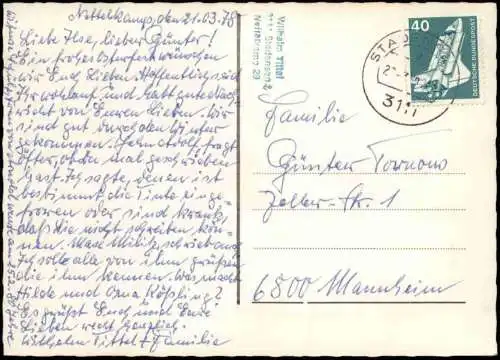 Nettelkamp, den 21.03.78
Liebe Ilse, lieber Günter!
Ein frohes Osterfest wünschen
wir Euch Lieben. Hoffentlich seid
Ihr wohlauf und habt gute Nach-
richt von Euren Lieben. Wir
sind gut durch den Winter
gekommen. Adolf fragt
öfter, ob Du mal geschrieben
hast. Ich sagte, denen ist
bestimmt die Tinte einge-
froren oder sind krank,
daß die nicht schreiben kön-
nen. Max Militz schrieb auch
Ich soll alle von ihm grüßen
die ihn kennen. Was macht
Hilde und Oma Rößling?
Es grüßt Euch und Eure
Lieben recht herzlich
Wilhelm Tittel + Familie
Wilhelm Tittel
Nettelkamp 29
40
DEUTSCHE BUNDESPOST
STAD
311
Familie
Günter Tornow
Zeller-Str. 1
6800 Mannheim